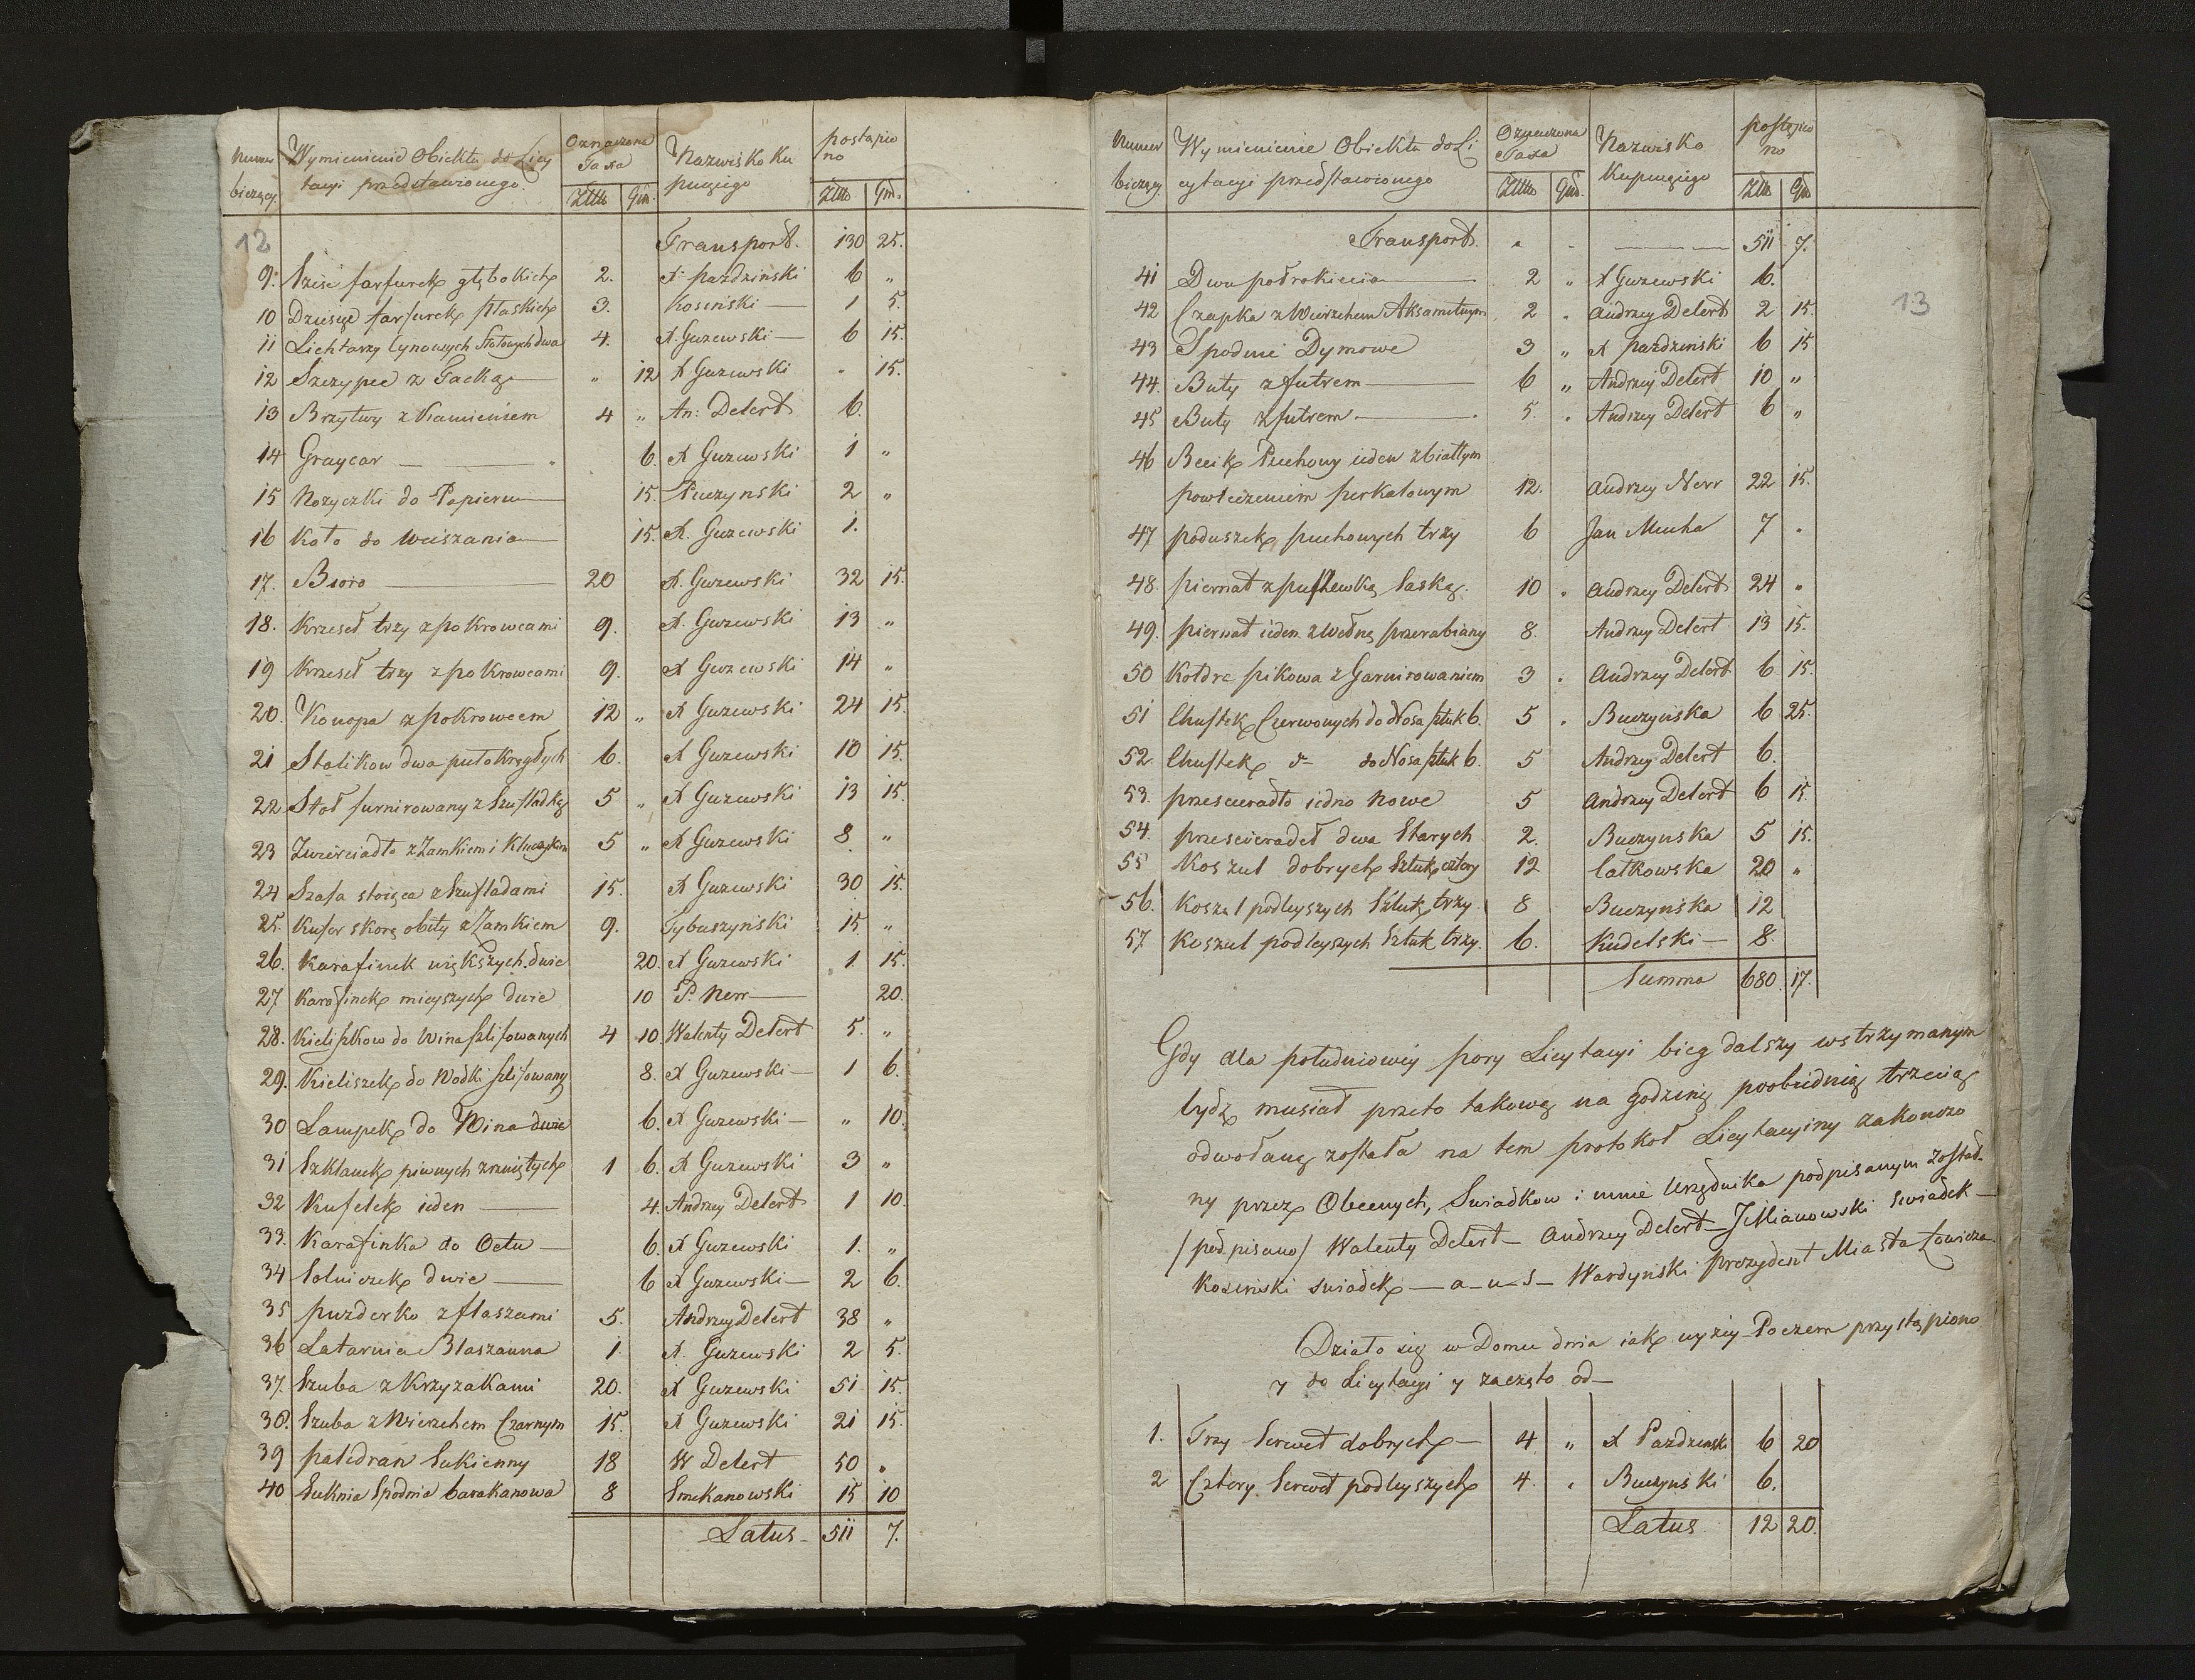 Numer Wymienienie Obiektu do Licy Oznaczona Nazwisko Ku postąpio
bieżący. tacyi przedstawionego. Taxa pującego no
Złtt Gm. Złtt Gm.
12
Transport. 130 25.
9. Sześć farfurek głębokich 2. X Pazdzinski 6 „
10 Dziesięć farfurek płaskich 3. Kosinski — 1 5.
11 Lichtarzy Cynowych Stołowych dwa 4. X. Guzewski — 6 15.
12 Szczypce z Tacką — „ 12 X Guzewski „ 15.
13 Brzytwy z Kamieniem 4 „ An: Delert 6.
14 Graycar — 6. X Guzewski 1 „
15 Nozyczki do Papieru — 15. Puczynski 2 „
16 Koło do Wieszania — 15. X. Guzewski 1.
17. Bioro — 20 X. Guzewski 32 15.
18. Krzeseł trzy z pokrowcami 9. X. Guzewski 13 „
19 Krzeseł trzy z pokrowcami 9. X Guzewski 14 „
20. Kanopa z pokrowcem 12 „ X Guzewski 24 15.
21 Stolikow dwa pułokrągłych 6. X Guzewski 10 15.
22. Stoł furnirowany z Szufladką 5 „ X Guzewski 13 15.
23 Zwierciadło z Zamkiem i Kluczykiem 5 „ X Guzewski 8. „
24 Szafa stoiąca z Szufladami 15. X Guzewski 30 15.
25. Kufer skorą obity z Zamkiem 9. Tybuszynski 15 „
26. Karafinek większych dwie 20. X Guzewski 1. 15.
27 Karafinek mieyszych dwie 10 P. Nerr — 20.
28. Kieliszkow do Wina szlifowanych 4 10. Walenty Delert 5. „
29. Kieliszek do Wodki szlifowany 8. X Guzewski — 1 6.
30 Lampek do Wina dwie 6. X Guzewski — „ 10.
31 Szklanek piwnych zrzniętych 1 6. X Guzewski 3 „
32 Kufelek ieden — 4. Andrzey Delert 1 10.
33. Karafinka do Octu — 6. X Guzewski 1. „
34 Solniczek dwie — 6 X Guzewski — 2 6.
35 puzderko z flaszami 5. Andrzey Delert 38 „
36 Latarnia Blaszanna 1. X. Guzewski 2 5.
37. Szuba z Krzyzakami 20. X Guzewski 51 15.
38. Szuba z Wierzchem Czarnym 15. X Guzewski 21 15.
39 paledran Sukienny 18 W Delert 50 „
40 Suknia Spodnia barakanowa 8 Smekanowski 15 10
Latus — 511 7.
Numer Wymienienie Obiektu do Li Oznaczona Nazwisko postąpio
bieżący. cytacyi przedstawionego Taxa Kupuiącego no
Złtt Gm. Złt Gm
13
Transport. „ - — 511 7.
41 Dwa połrokicia — 2 „ X Guzewski 6.
42 Czapka z Wierzchem Aksamitnym 2 „ Andrzey Delert 2 15.
43 Spodnie Dymowe 3 „ X Pazdzinski 6 15
44. Buty z futrem — 6 „ Andrzey Delert 10 „
45 Buty z futrem — 5. „ Andrzey Delert 6 „
46 Becik Puchowy ieden z białym
powleczeniem perkalowym 12. Andrzey Nerr 22 15.
47 poduszek puchowych trzy 6 Jan Mucha 7 „
48. piernat z puszewką Saską. 10 „ Andrzey Delert 24 „
49. piernat ieden z Wełną przerabiany 8. Andrzey Delert 13 15.
50 Kołdra pikowa z Garnirowaniem 3 . Andrzey Delert 6 15.
51 Chustek Czerwonych do Nosa sztuk 6. 5 . Buczynska 6 25.
52. Chustek d- do Nosa sztuk 6. 5 Andrzey Delert 6.
53. przescieradło iedno nowe 5 Andrzey Delert 6 15.
54. przescieradeł dwa Starych 2. Buczynska 5 15.
55 Koszul dobrych Sztuk cztery 12 Catkowska 20 „
56. Koszul podleyszych Sztuk trzy. 8 Buczynska 12
57 Koszul podleyszych Sztuk trzy. 6. Kudelski — 8.
Summa 680. 17.
Gdy dla południowey pory Licytacyi bieg dalszy wstrzymanym
bydz musiał przeto takową na godzinę poobiednią trzecią
odwołaną została na tem protokoł Licytacyiny zakończo
ny przez Obecnych, Swiadkow i mnie Urzędnika podpisanym został.
/podpisano/ Walenty Delert — Andrzey Delert — J Mianowski Swiadek —
Kosinski swiadek — a — u — S — Wardynski prezydent Miasta Łowicza.
Działo się w Domu dnia iak wyzey — Poczem przystąpiono
y do Licytacyi y zaczęto od —
1. Trzy Serwet dobrych — 4 „ X Pazdzinski 6 20
2 Cztery Serwet podleyszych 4. „ Buczynski 6.
Latus 12 20.